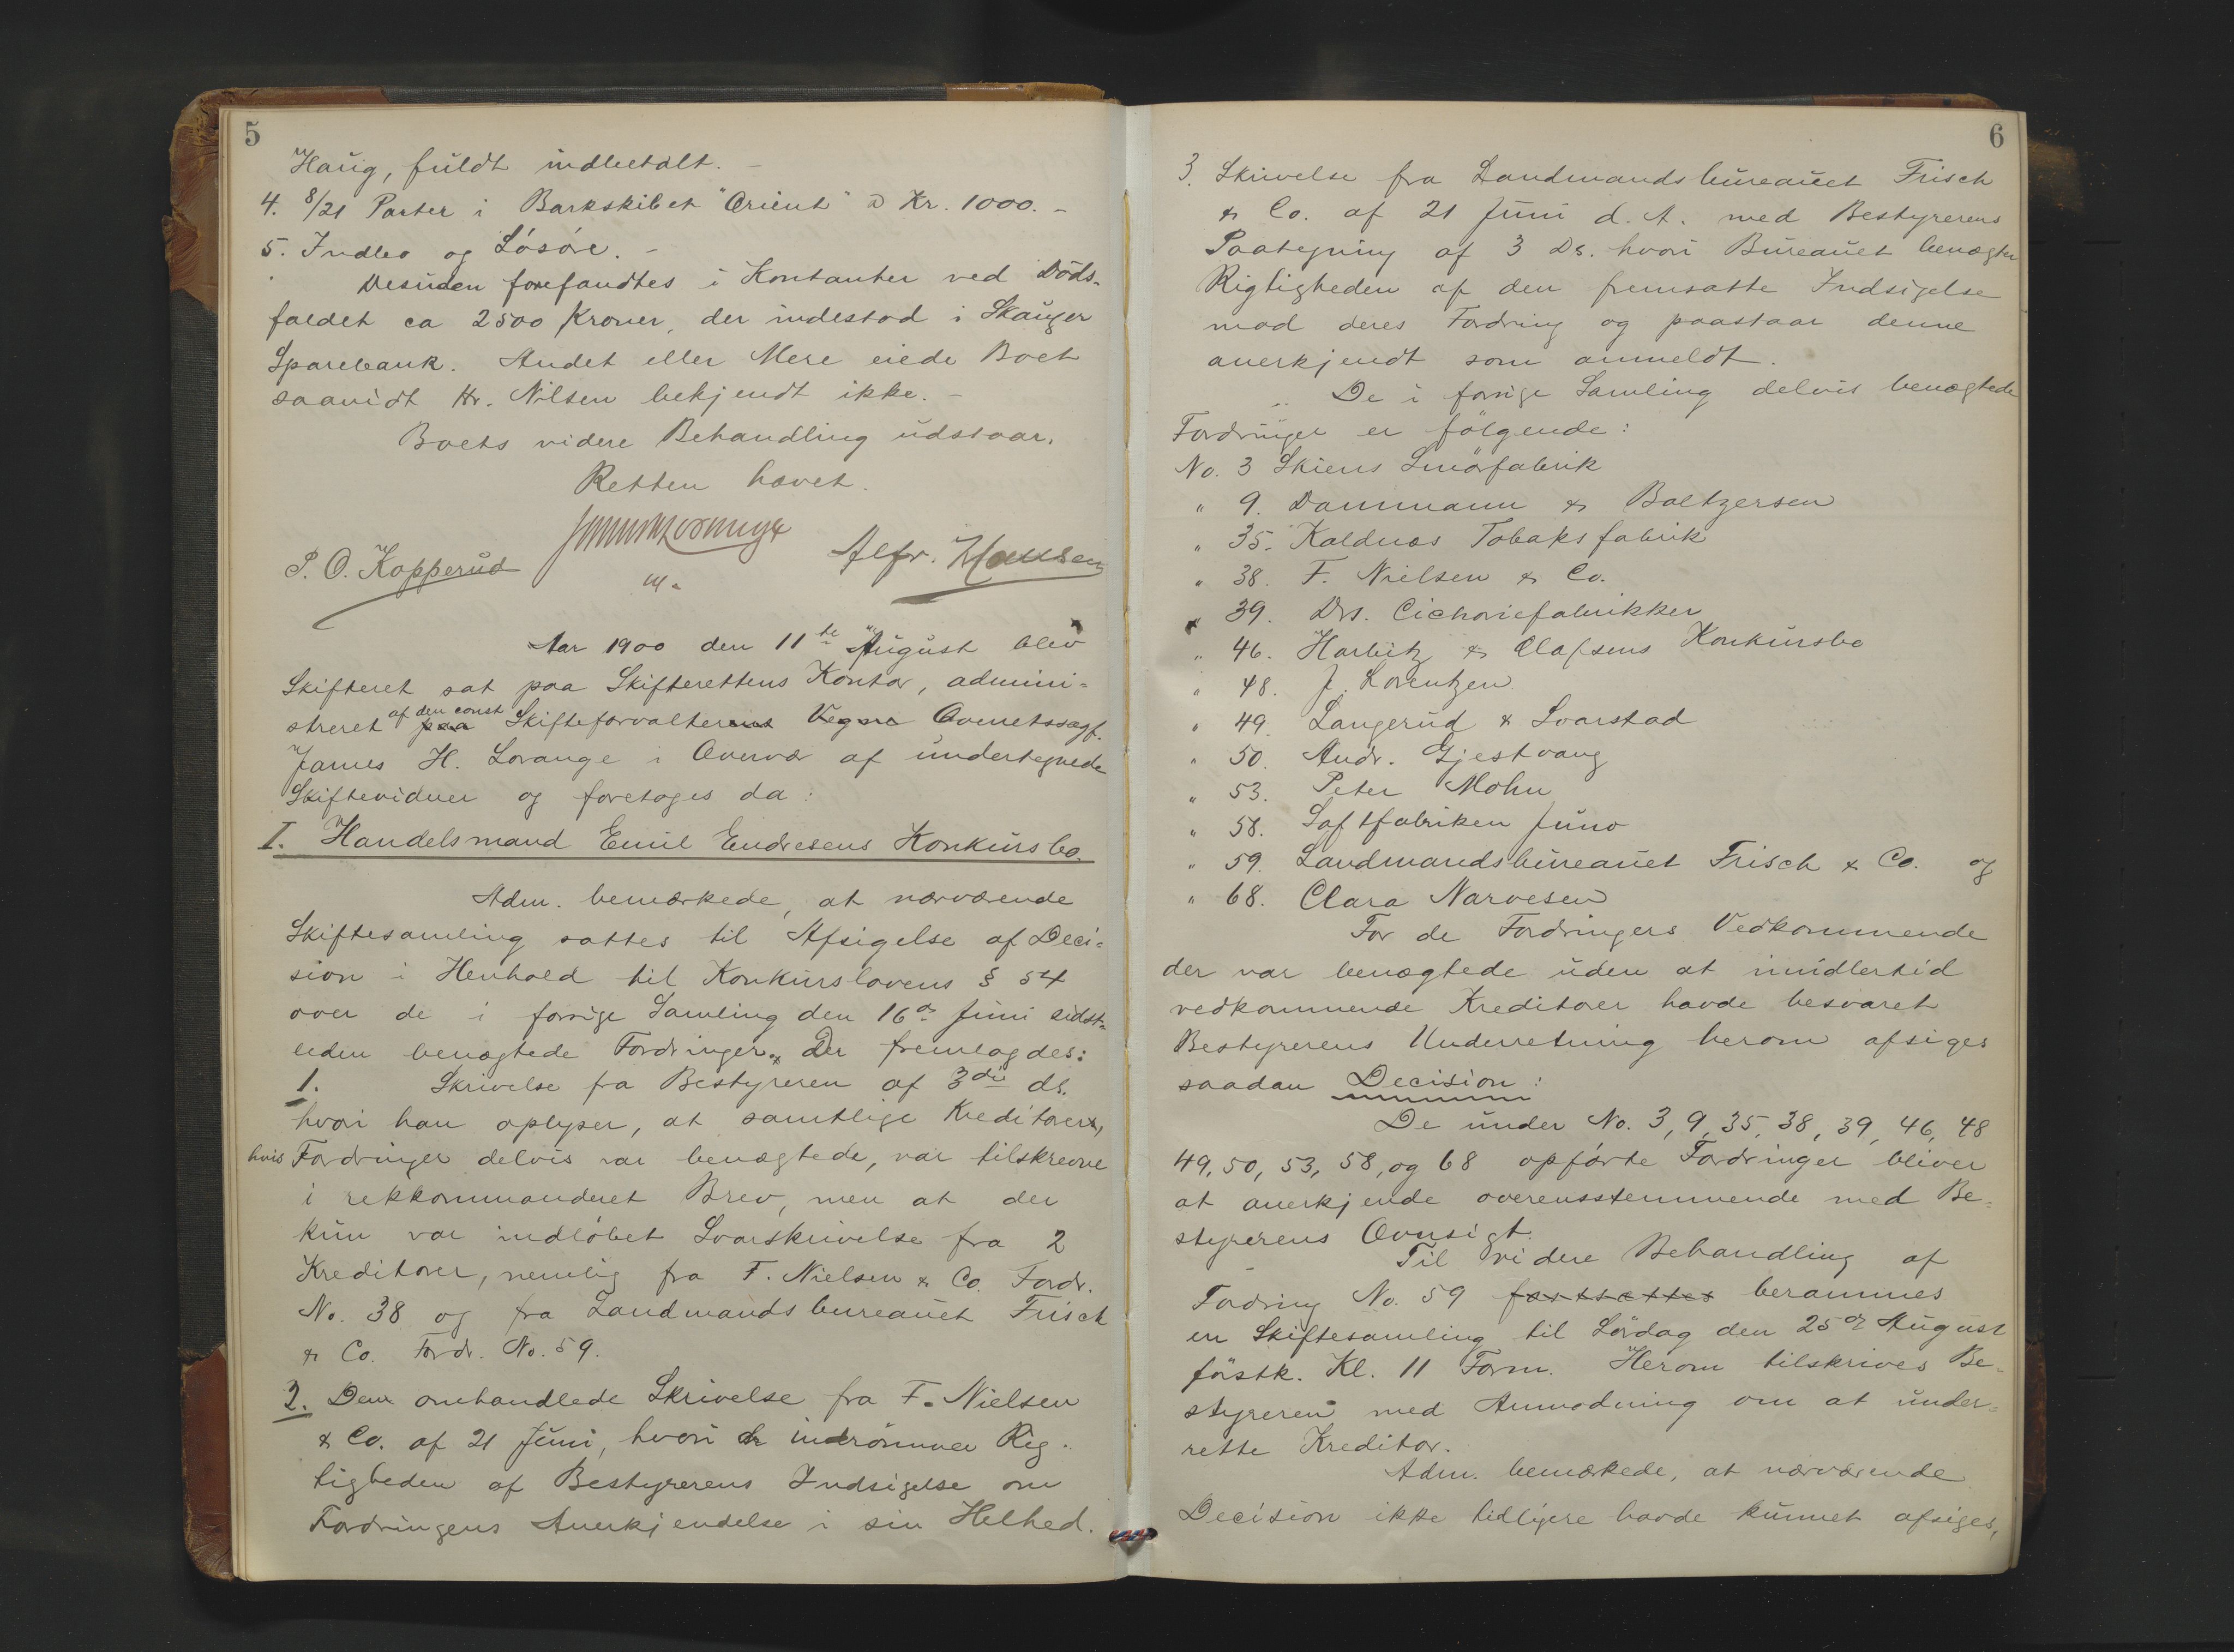 5
Haug, fuldt indbetalt. -
4. 8/21 Parter i Barkskibet "Orient" à Kr. 1000. -
5. Indbo og Løsøre. -
Desuden forefandtes i Kontanter ved Døds-
faldet ca 2500 Kroner, der indestod i Skauger
Sparebank. Andet eller Mere eiede Boet
saavidt Hr. Nilsen bekjendt ikke. -
Boets videre Behandling udstaar.
Retten hævet.
P. O. Kopperud
Alfr. Hansen
Aar 1900 den 11te August blev
Skifteret sat paa Skifterettens Kontor, admini-
streret af den const Skifteforvalter Overretssagf.
James H. Lorange i Overvær af undertegnede
Skiftevidner og foretoges da:
I. Handelsmand Emil Endresens Konkursbo.
Adm. bemærkede, at nærværende
Skiftesamling sattes til Afsigelse af Deci-
sion i Henhold til Konkurslovens § 54
over de i forrige Samling den 16de Juni sidst-
leden benægtede Fordringer. Der fremlagdes:
1. Skrivelse fra Bestyreren af 3die ds.
hvori han oplyser, at samtlige Kreditorer,
hvis Fordringer delvis var benægtede, var tilskrevne
i rekkommanderet Brev, men at der
kun var indløbet Svarskrivelse fra 2
Kreditorer, nemlig fra F. Nielsen & Co. Fordr.
No. 38 og fra Landmandsbureauet Frisch
& Co. Fordr. No. 59.
2. Den omhandlede Skrivelse fra F. Nielsen
& Co. af 21 Juni, hvori de indrømmer Rig-
tigheden af Bestyrerens Indsigelse om
Fordringens Anerkjendelse i sin Helhed.
6
3. Skrivelse fra Landmandsbureauet Frisch
& Co. af 21 Juni d. A. med Bestyrerens
Paategning af 3 Ds. hvori Bureauet benægter
Rigtigheden af den fremsatte Indsigelse
mod deres Fordring og paastaar denne
anerkjendt som anmeldt.
De i forrige Samling delvis benægtede
Fordringer er følgende:
No. 3 Skiens Smørfabrik
" 9. Dammann & Baltzersen
" 35. Kaldnæs Tobaksfabrik
" 38. F. Nielsen & Co.
" 39. Drs. Cichoriefabrikker
" 46. Harbitz & Olafsens Konkursbo
" 48. J. Lorentzen
" 49. Langerud & Svarstad
" 50. Andr. Gjestvang
" 53. Peter Mohn
" 58. Saftfabriken Juno
" 59. Landmandsbureauet Frisch & Co. og
" 68. Clara Narvesen
For de Fordringers Vedkommende
der var benægtede uden at imidlertid
vedkommende Kreditorer havde besvaret
Bestyrerens Underretning herom afsiges
saadan Decision:
De under No. 3, 9, 35, 38, 39, 46, 48
49, 50, 53, 58, og 68 opførte Fordringer bliver
at anerkjende overensstemmende med Be-
styrerens Ovnsigt.
Til videre Behandling af
Fordring No. 59 fastsættes berammes
en Skiftesamling til Lørdag den 25de August
førstk. Kl. 11 Form. Herom tilskrives Be-
styreren med Anmodning om at under-
rette Kreditor.
Adm. bemærkede, at nærværende
Decision ikke tidligere havde kunnet afsiges,